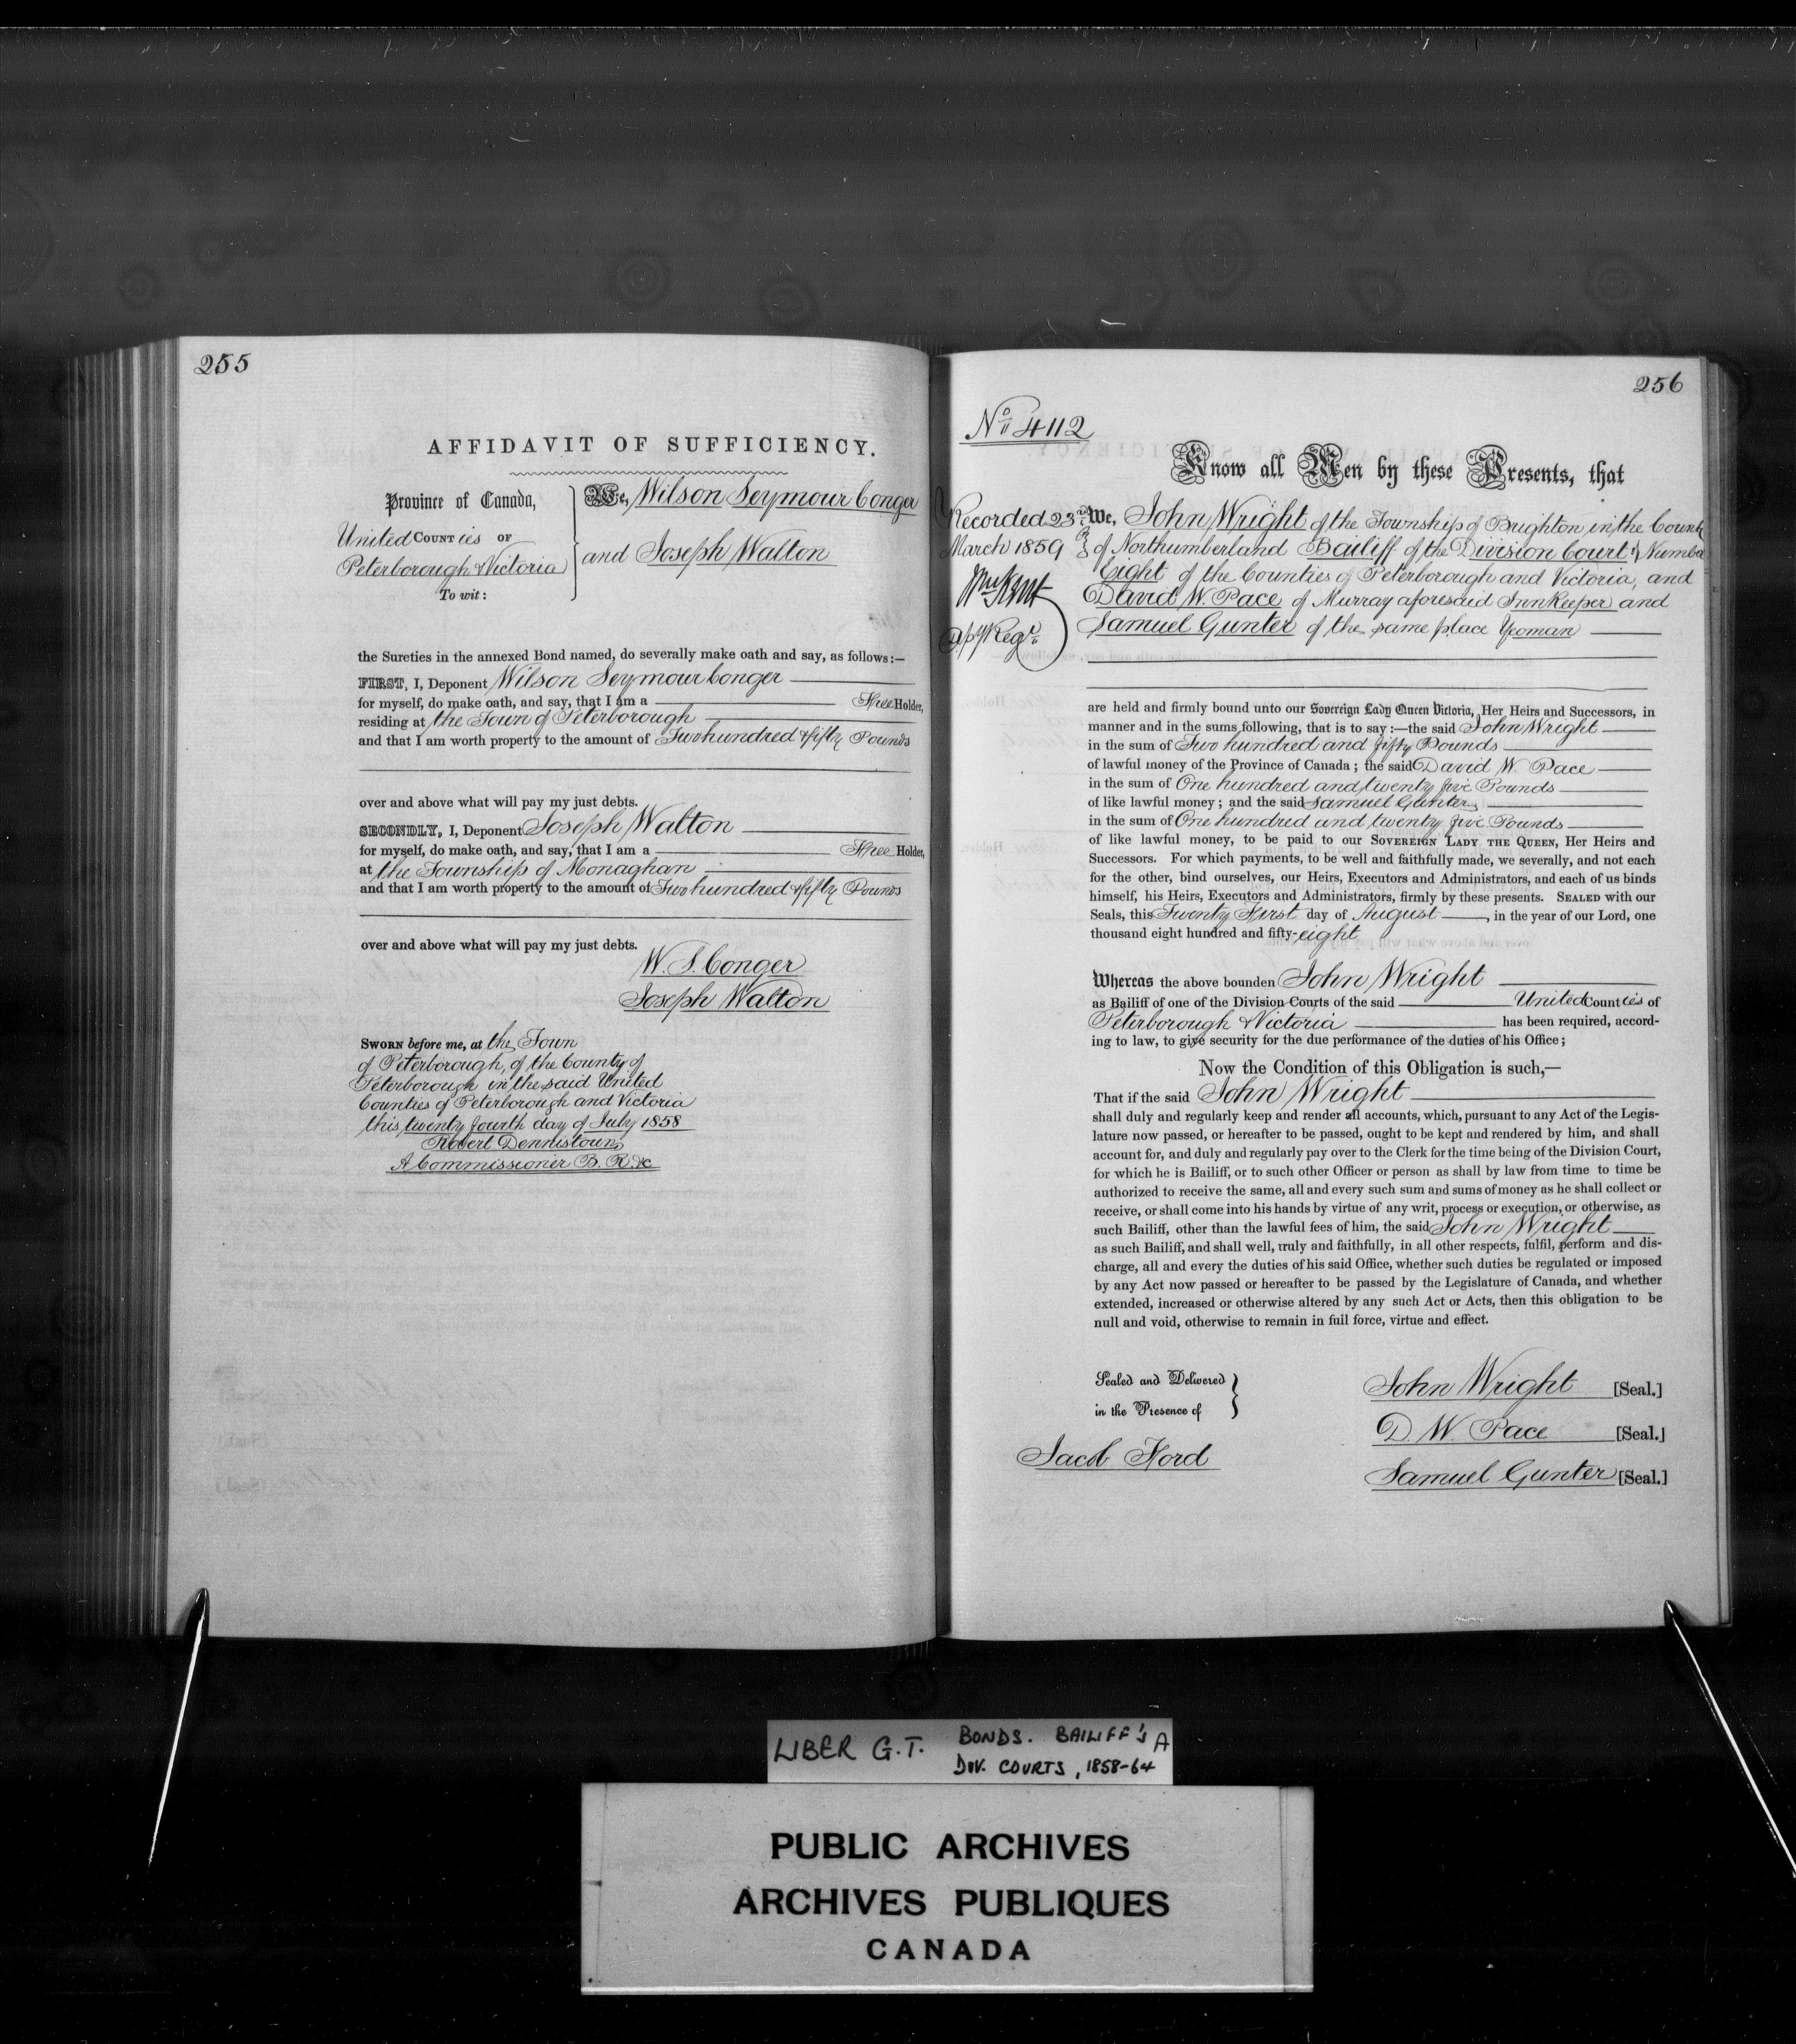 255
AFFIDAVIT OF SUFFICIENCY.
Province of Canada,
United COUNTies OF
Peterborough & Victoria
To wit:
We, Wilson Seymour Conger
and Joseph Walton
the Sureties in the annexed Bond named, do severally make oath and say, as follows:—
FIRST, I, Deponent Wilson Seymour Conger
for myself, do make oath, and say, that I am a Free Holder,
residing at the Town of Peterborough
and that I am worth property to the amount of Two hundred & fifty Pounds
over and above what will pay my just debts.
SECONDLY, I, Deponent Joseph Walton
for myself, do make oath, and say, that I am a Free Holder,
at the Township of Monaghan
and that I am worth property to the amount of Two hundred & fifty Pounds
over and above what will pay my just debts.
W. S. Conger
Joseph Walton
SWORN before me, at the Town
of Peterborough, of the County of
Peterborough in the said United
Counties of Peterborough and Victoria
this twenty fourth day of July 1858
Robert Dennistoun
A Commissioner B. R. &c
256
No 4112
Know all Men by these Presents, that
Recorded 23rd
March 1859
Wm Kent
Dpy Regr.
We, John Wright of the Township of Brighton in the County
of Northumberland Bailiff of the Division Court Number
Eight of the Counties of Peterborough and Victoria, and
David W. Pace of Murray aforesaid InnKeeper and
Samuel Gunter of the same place Yeoman
are held and firmly bound unto our Sovereign Lady Queen Victoria, Her Heirs and Successors, in
manner and in the sums following, that is to say:—the said John Wright
in the sum of Two hundred and fifty Pounds
of lawful money of the Province of Canada; the said David W. Pace
in the sum of One hundred and twenty five Pounds
of like lawful money; and the said Samuel Gunter
in the sum of One hundred and twenty five Pounds
of like lawful money, to be paid to our SOVEREIGN LADY THE QUEEN, Her Heirs and
Successors. For which payments, to be well and faithfully made, we severally, and not each
for the other, bind ourselves, our Heirs, Executors and Administrators, and each of us binds
himself, his Heirs, Executors and Administrators, firmly by these presents. SEALED with our
Seals, this Twenty First day of August, in the year of our Lord, one
thousand eight hundred and fifty-eight
Whereas the above bounden John Wright
as Bailiff of one of the Division Courts of the said United Counties of
Peterborough & Victoria has been required, accord-
ing to law, to give security for the due performance of the duties of his Office;
Now the Condition of this Obligation is such,—
That if the said John Wright
shall duly and regularly keep and render all accounts, which, pursuant to any Act of the Legis-
lature now passed, or hereafter to be passed, ought to be kept and rendered by him, and shall
account for, and duly and regularly pay over to the Clerk for the time being of the Division Court,
for which he is Bailiff, or to such other Officer or person as shall by law from time to time be
authorized to receive the same, all and every such sum and sums of money as he shall collect or
receive, or shall come into his hands by virtue of any writ, process or execution, or otherwise, as
such Bailiff, other than the lawful fees of him, the said John Wright
as such Bailiff, and shall well, truly and faithfully, in all other respects, fulfil, perform and dis-
charge, all and every the duties of his said Office, whether such duties be regulated or imposed
by any Act now passed or hereafter to be passed by the Legislature of Canada, and whether
extended, increased or otherwise altered by any such Act or Acts, then this obligation to be
null and void, otherwise to remain in full force, virtue and effect.
Sealed and Delivered
in the Presence of
Jacob Ford
John Wright [Seal.]
D. W. Pace [Seal.]
Samuel Gunter [Seal.]
LIBER G.T. BONDS. BAILIFF'S A
DIV. COURTS, 1858-64
PUBLIC ARCHIVES
ARCHIVES PUBLIQUES
CANADA